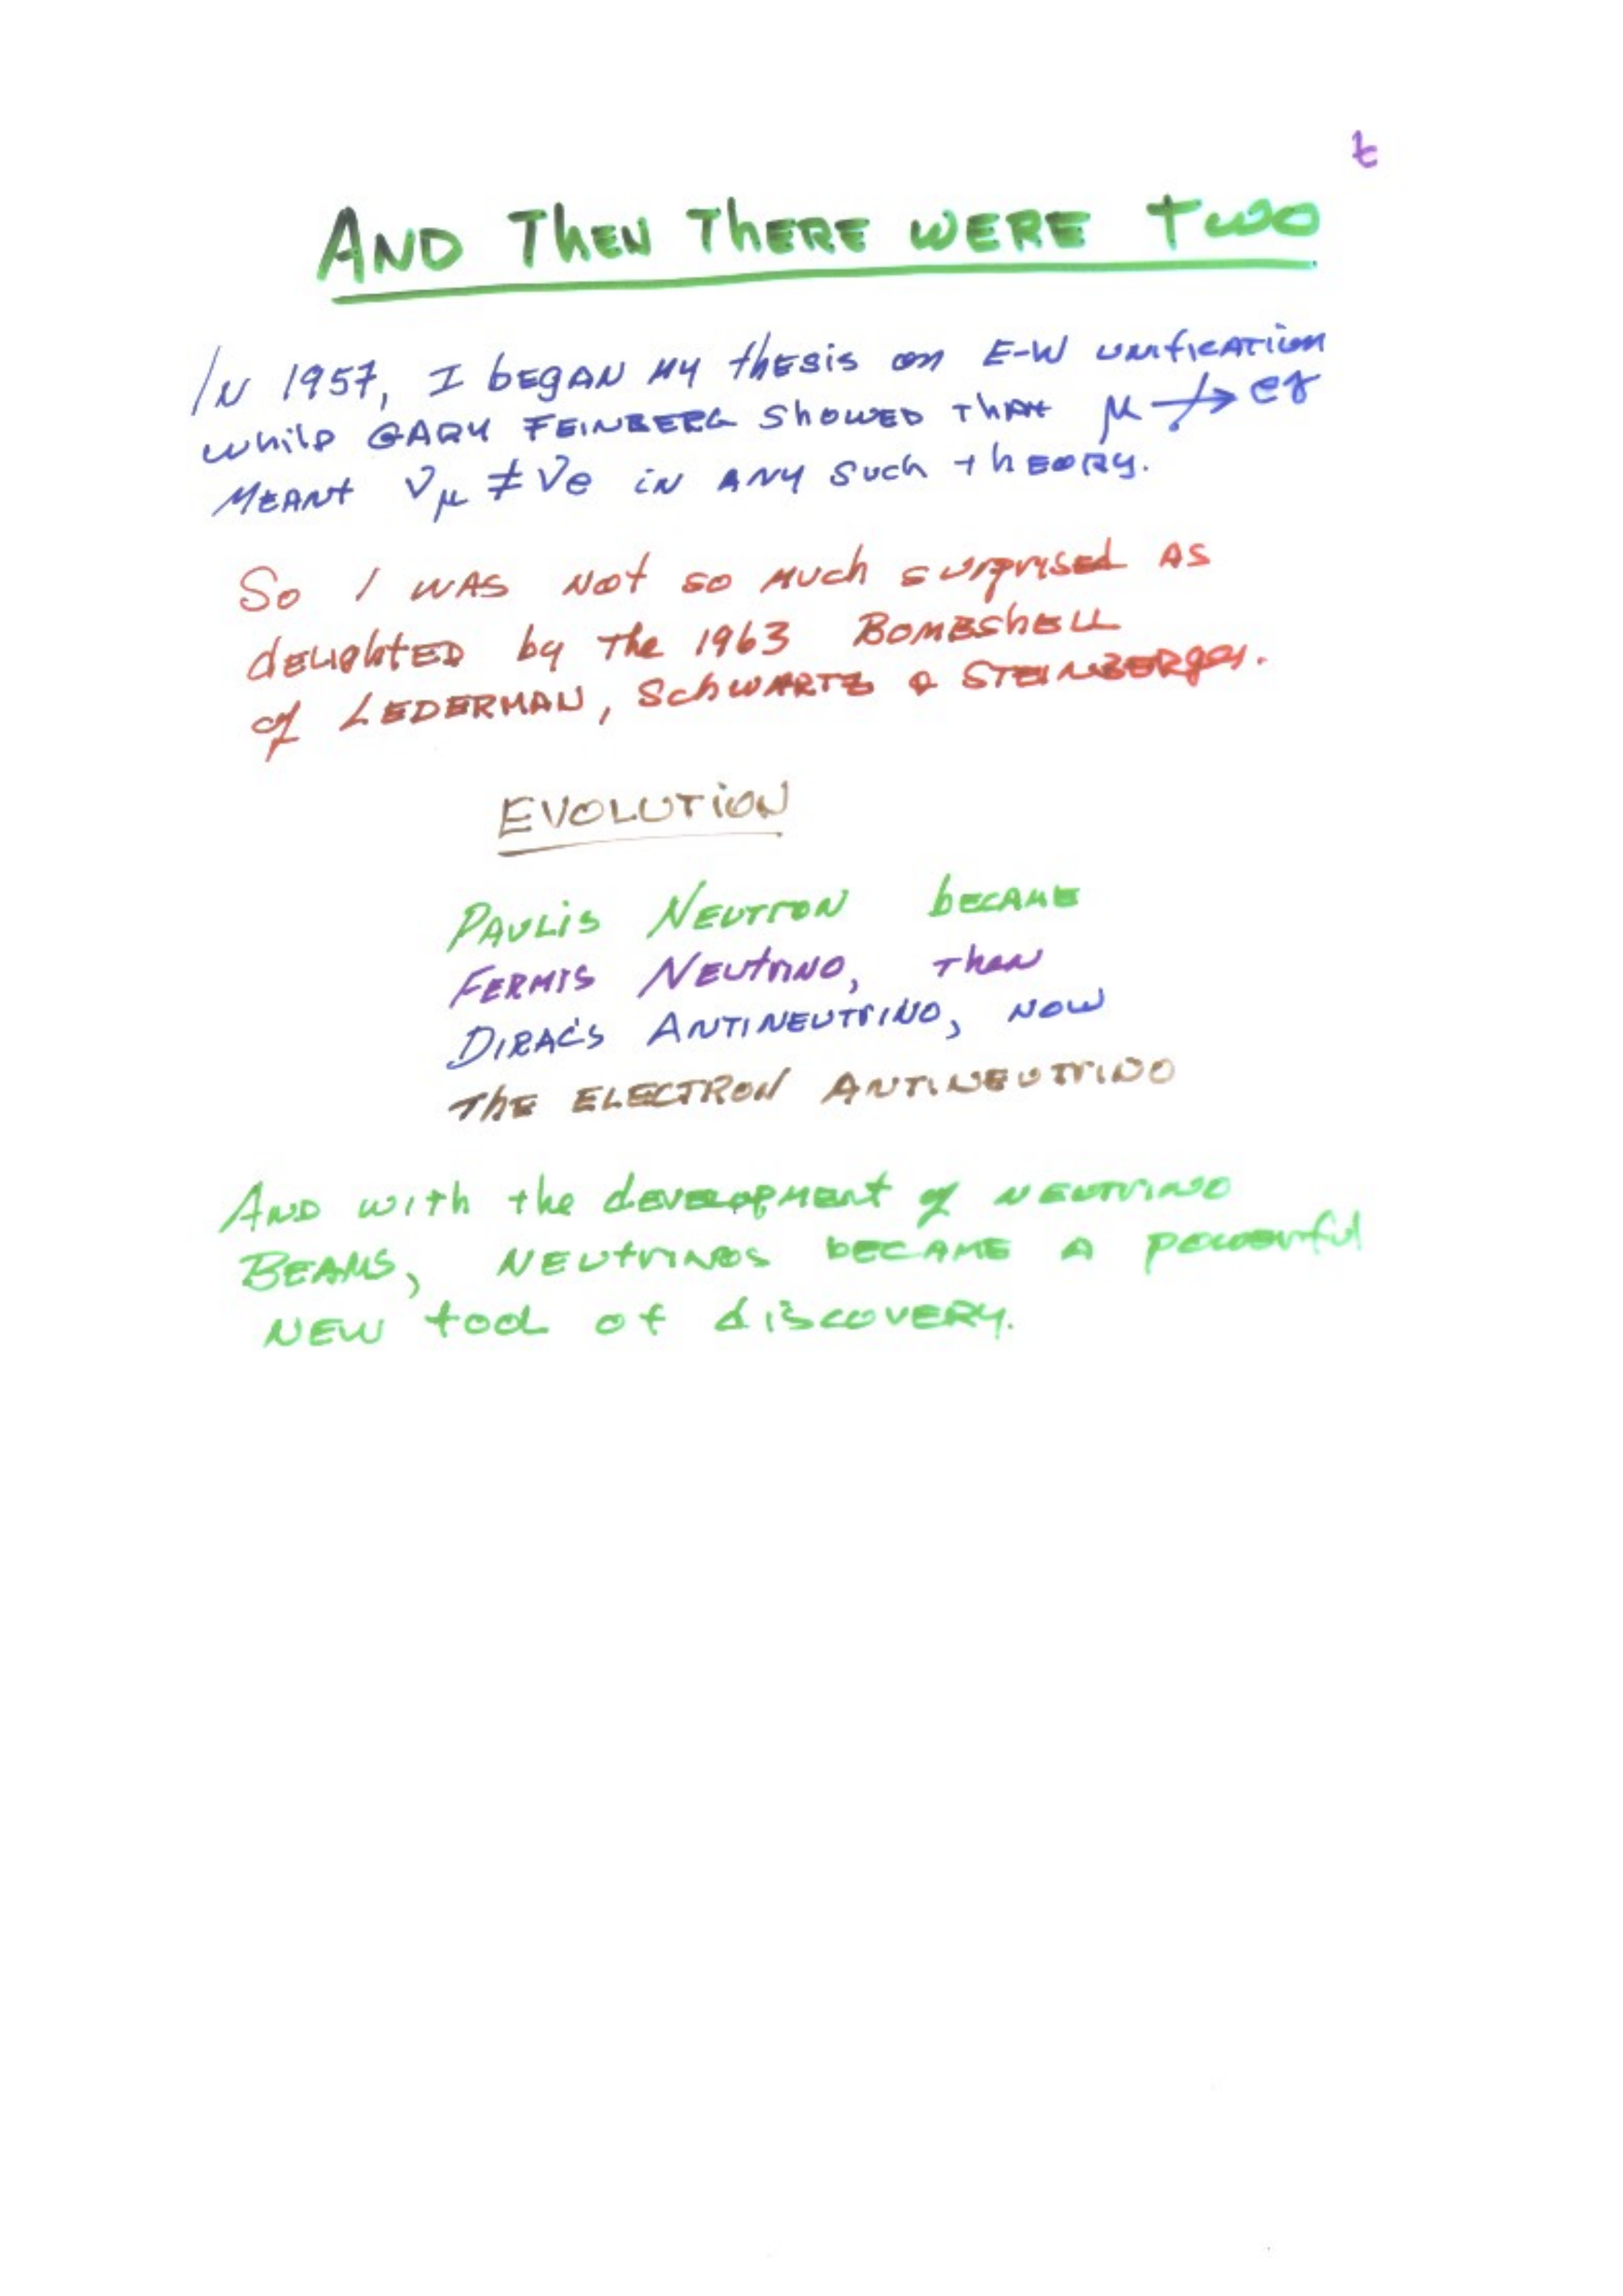 t
AND THEN THERE WERE TWO
IN 1957, I BEGAN MY THESIS on E-W UNIFICATION
while GARY FEINBERG SHOWED THAT μ ↛ eγ
MEANT νμ ≠ νe IN ANY SUCH THEORY.
So I WAS NOT SO MUCH surprised AS
dELIGHTED by The 1963 BOMBSHELL
of LEDERMAN, SCHWARTZ & STEINBERGER.
EVOLUTION
PAULIS NEUTRON bECAME
FERMIS NEUTRINO, THEN
DIRAC'S ANTINEUTRINO, NOW
THE ELECTRON ANTINEUTRINO
AND WITH the dEVELOPMENT of NEUTRINO
BEAMS, NEUTRINOS bECAME A POWERFUL
NEW TOOL OF DISCOVERY.